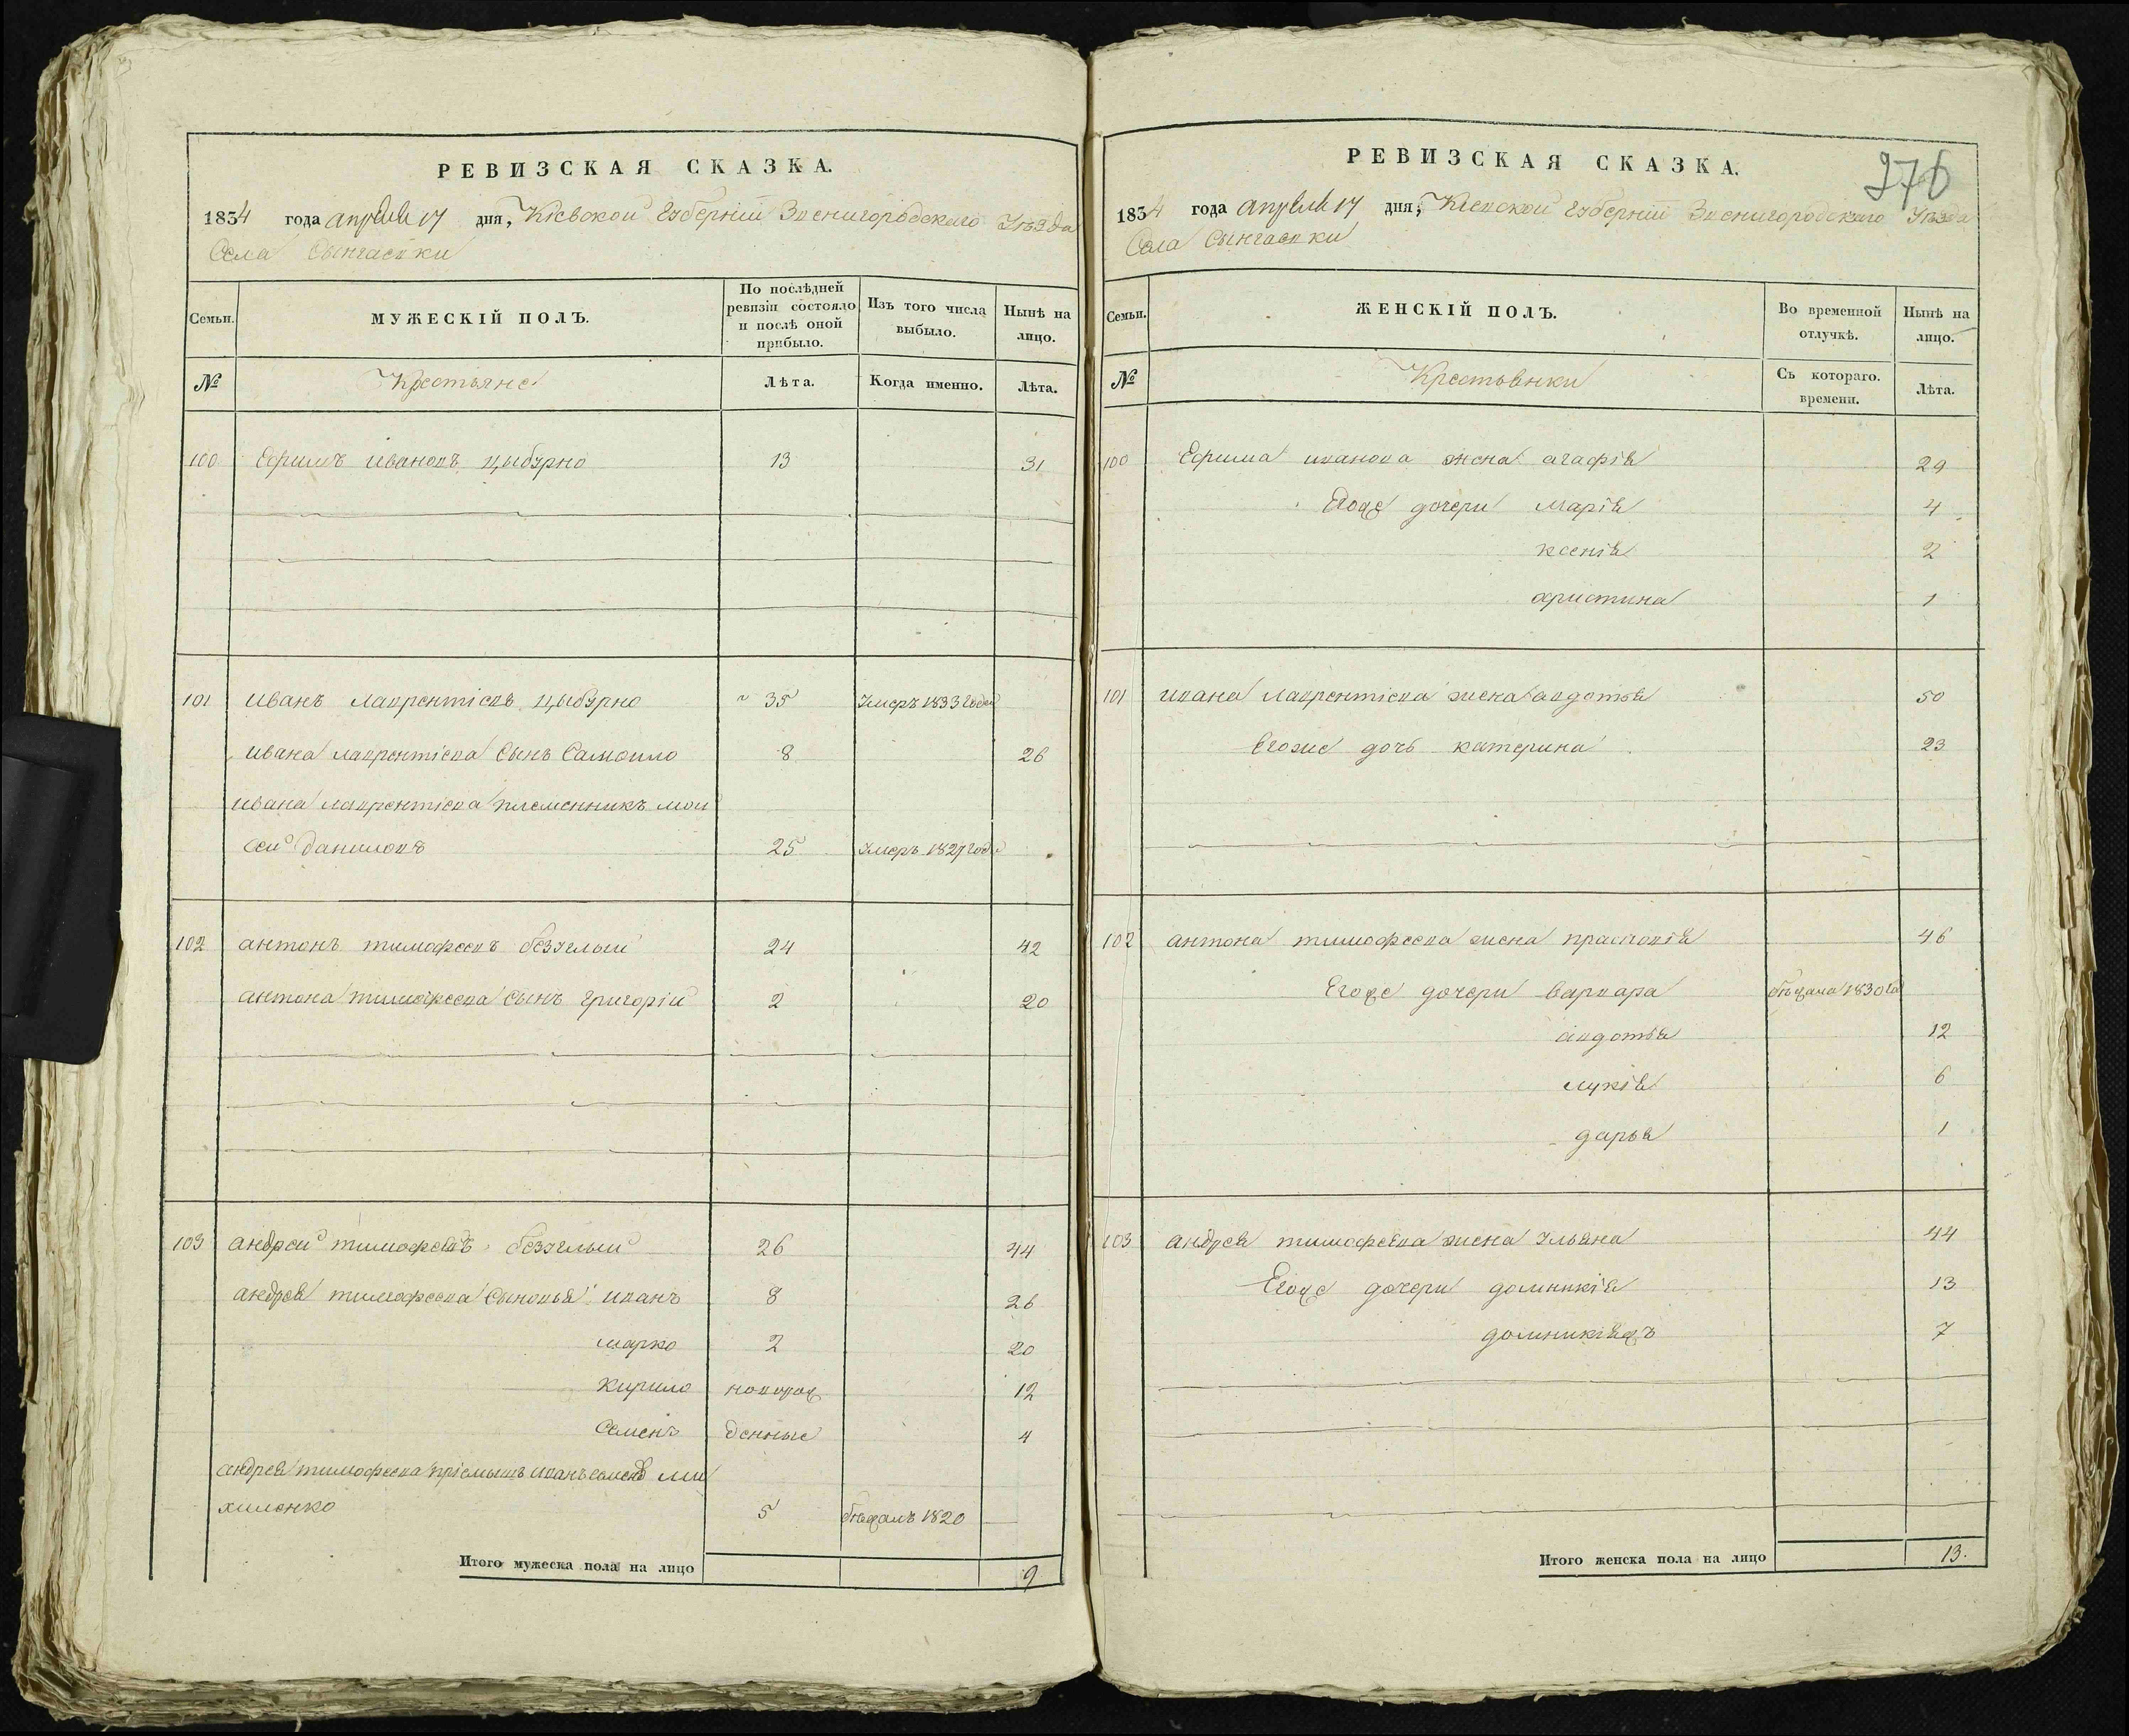 РЕВИЗСКАЯ СКАЗКА.
1834 года апреля 17 дня, Кіевской Губерніи Звенигородского Уѣзда
Села Сынгаевки
Семьи. МУЖЕСКІЙ ПОЛЪ. По послѣдней ревизіи состояло и послѣ оной прибыло. Изъ того числа выбыло. Нынѣ на лицо.
№ Крестьяне Лѣта. Когда именно. Лѣта.
100 Ефимъ ивановъ цыбурно 13 31
101 иванъ лаврентіевъ цыбурно 35 Умеръ 1833 года
ивана лаврентіева Сынъ Самоило 8 26
ивана лаврентіева племенникъ мои
сей даниловъ 25 Умеръ 1827 года
102 антонъ тимофеевъ безуглый 24 42
антона тимофеева Сынъ григорій 2 20
103 андрей тимофеевъ безуглый 26 44
андрея тимофеева Сыновья иванъ 8 26
марко 2 20
Кирило новорож 12
Семенъ денные 4
андрея тимофеева пріемышъ иванъ семенов ми
хиленко 5 бѣжалъ 1820
Итого мужеска пола на лицо 9
РЕВИЗСКАЯ СКАЗКА.
276
1834 года апреля 17 дня, Кіевской Губерніи Звенигородского Уѣзда
Села Сынгаевки
Семьи. ЖЕНСКІЙ ПОЛЪ. Во временной отлучкѣ. Нынѣ на лицо.
№ Крестьянки Съ котораго. времени. Лѣта.
100 Ефима иванова жена агафія 29
Егоже дочери марія 4
ксенія 2
христина 1
101 ивана лаврентіева жена авдотья 50
Егоже дочь катерина 23
102 антона тимофеева жена прасковія 46
Егоже дочери варвара бѣжала 1830 го
авдотья 12
лукія 6
дарья 1
103 андрея тимофеева жена Ульяна 44
Егоже дочери домникія 13
домникіяжъ 7
Итого женска пола на лицо 13.